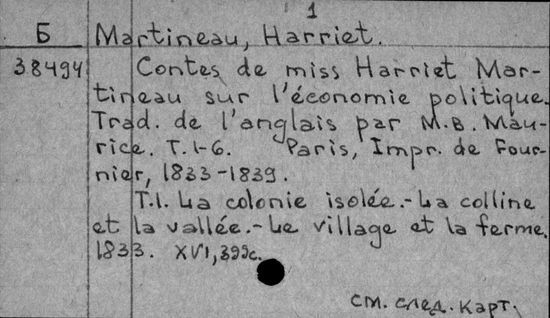 1
Б Martineau, Harriet.
38494 Contes de miss Harriet Mar-
tineau sur l'économie politique.
Trad. de l'anglais par M.B. Mau-
rice. T.1-6. Paris, Impr. de Four-
nier, 1833-1839.
T.1. La colonie isolée.-La colline
et la vallée.-Le village et la ferme.
1833. XVI, 399c.
см. след. карт.